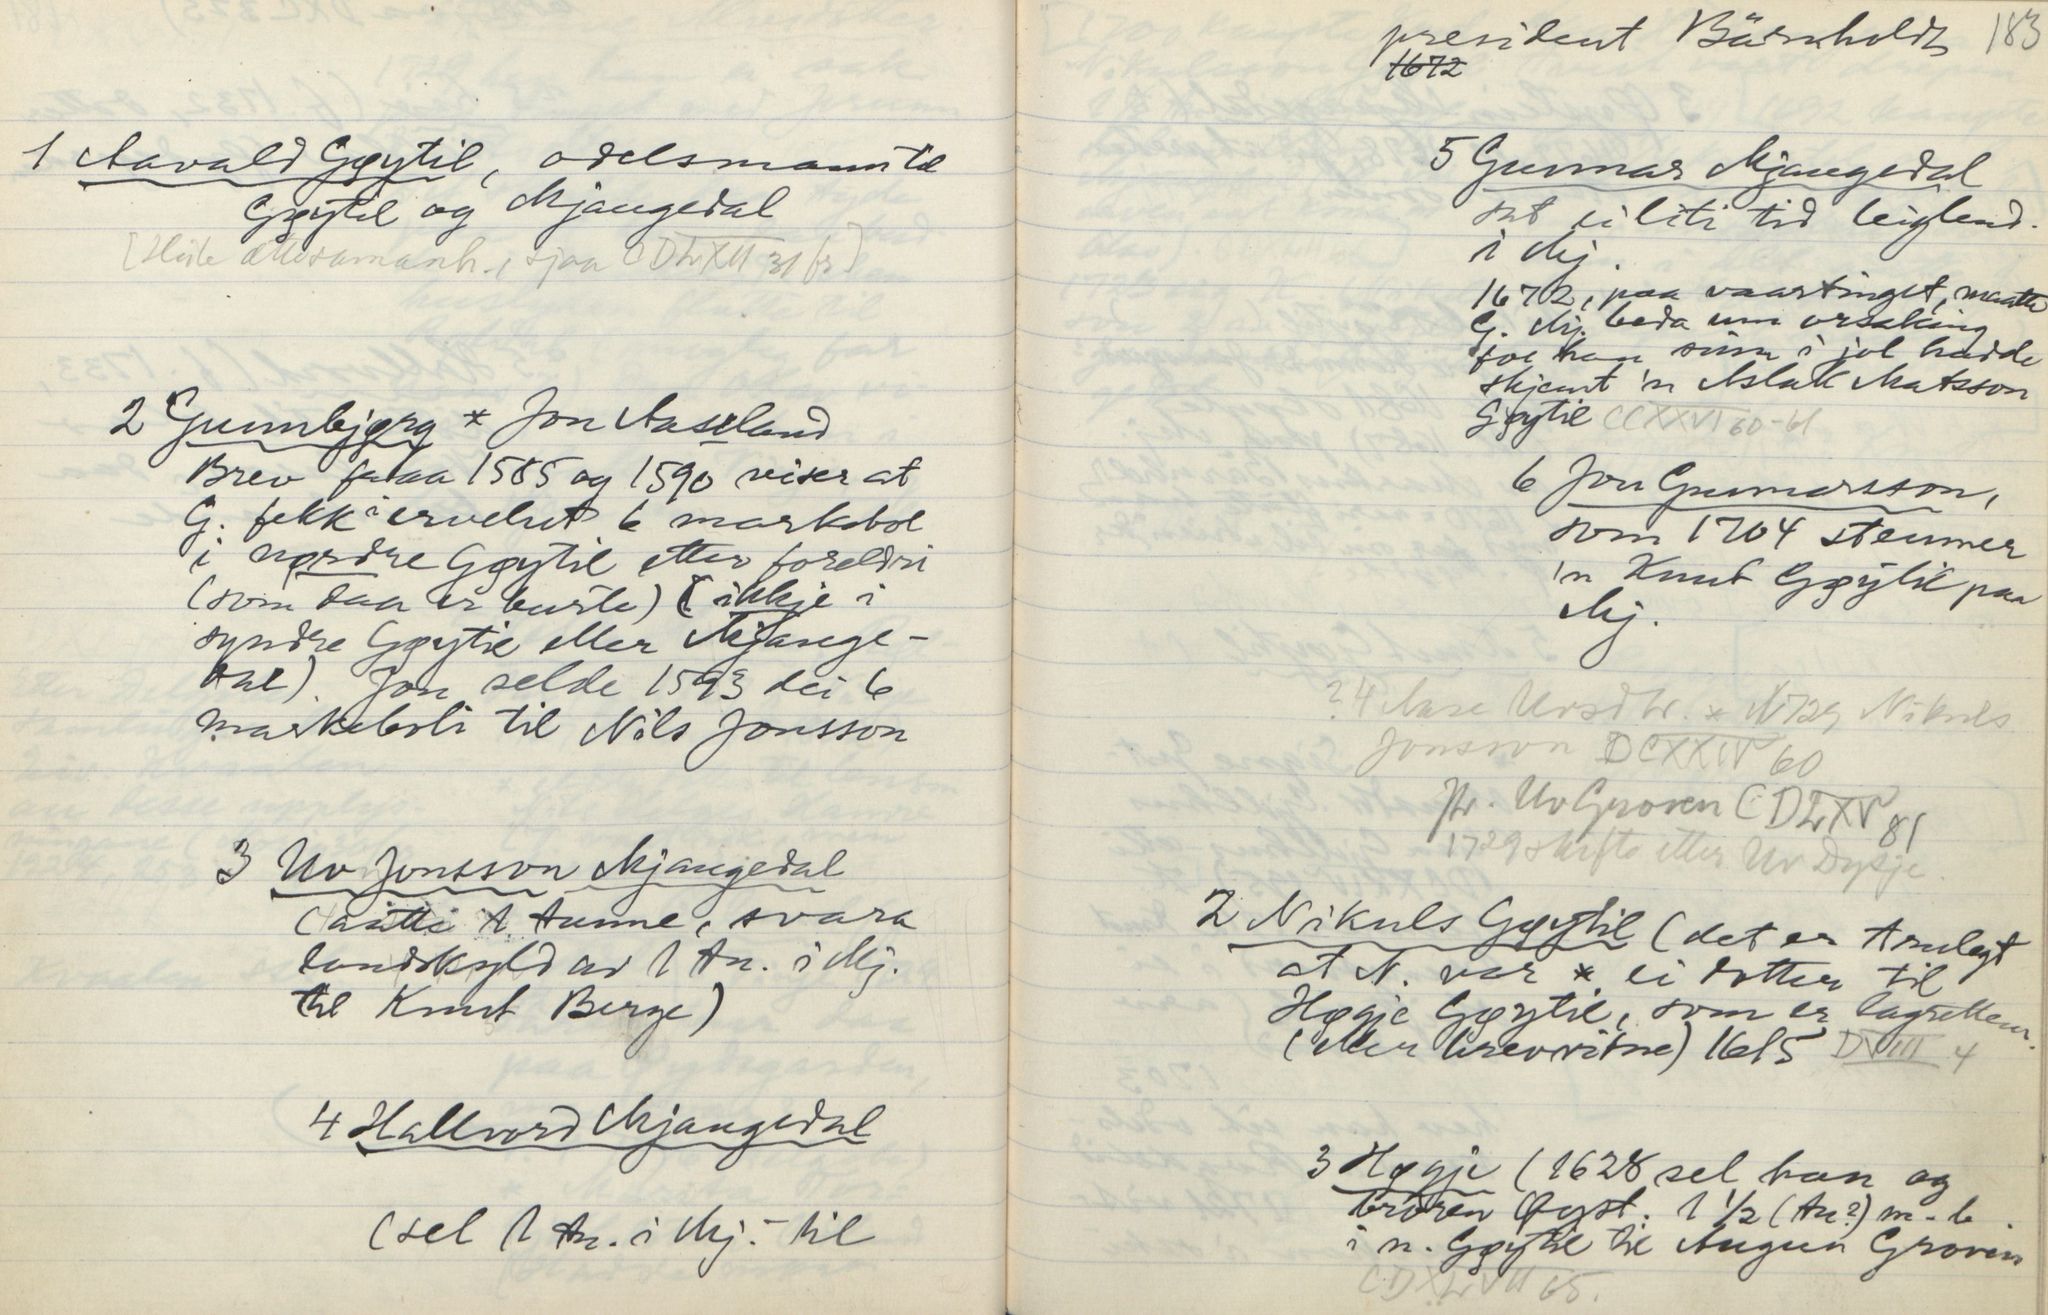 1 Aavald Gøytil, odelsmann til
Gøytil og Mjaugedal
[Heile ættesamanh., sjaa CDLXII 31 fr]
2 Gunnbjørg * Jon Aasland
Brev fraa 1585 og 1590 viser at
G. fekk i ervelut 6 markebol
i nørdre Gøytil etter foreldri
(som daa er burte) (ikkje i
syndre Gøytil eller Mjauge-
dal). Jon selde 1593 dei 6
markeboli til Nils Jonsson
3 Uv Jonsson Mjaugedal
(aatte 1 tunne, svara
landskyld av 1 tn. i Mj.
til Knut Berge)
4 Hallvord Mjaugedal
(sel 1 tn. i Mj. til
183
president Bärnholdt
1672
5 Gunnar Mjaugedal
sat ei liti tid leiglend.
i Mj.
1672, paa vaartinget, maatte
G. Mj. beda um orsaking
for han sium i jol hadde
skjemt 'n Aslak Matsson
Gøytil CCXXVI 60-61
6 Jon Gunnarsson,
som 1704 stemner
'n Knut Gøytil paa
Mj.
? 4 Aase Uvsdtr. * N 729 Nikuls
Jonsson DCXXIV 60
Jfr. Uv Groven CDLXV 81
1729 skifte etter Uv Dysje.
2 Nikuls Gøytil (det er truleg
at N. var * ei dotter til
Høgje Gøytil, som er lagrettem.
(eller brevvitne) 1615 DVIII 4
3 Høgje (1628 sel han og
broren Øyst. 1 1/2 (tn?) m.b.
i n. Gøytil til Augun Groven
CDXLVII 65.